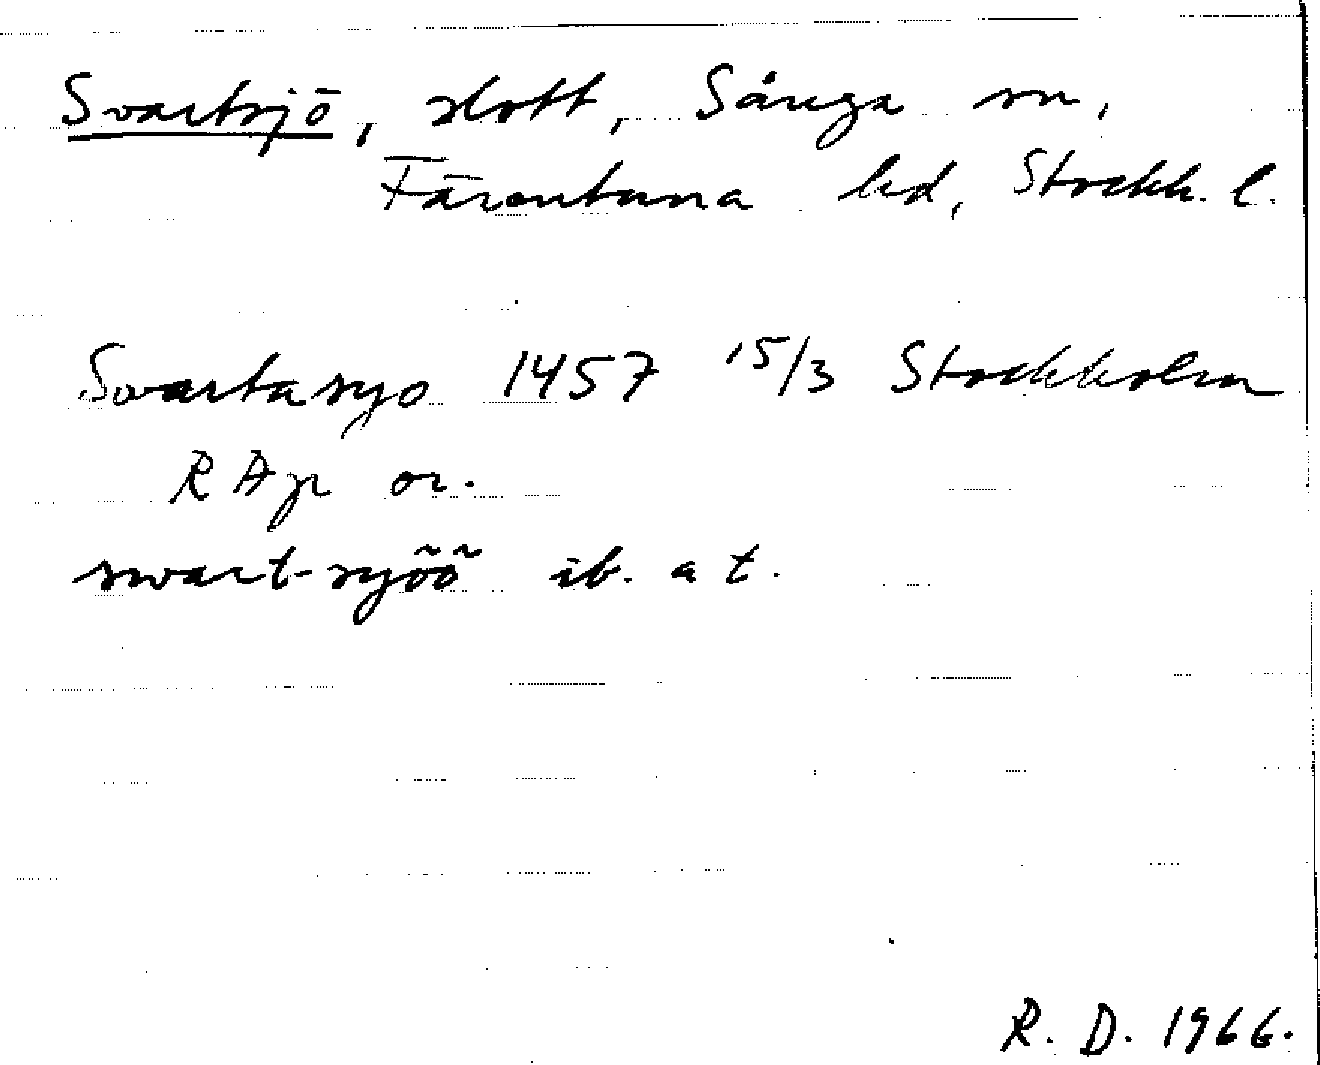 Svartsjö, slott, Sånga sn,
Färentuna hd, Stockh. l.
Svartasyo 1457 15/3 Stockholm
RAp or.
swart-syöö ib. a t.
R. D. 1966.